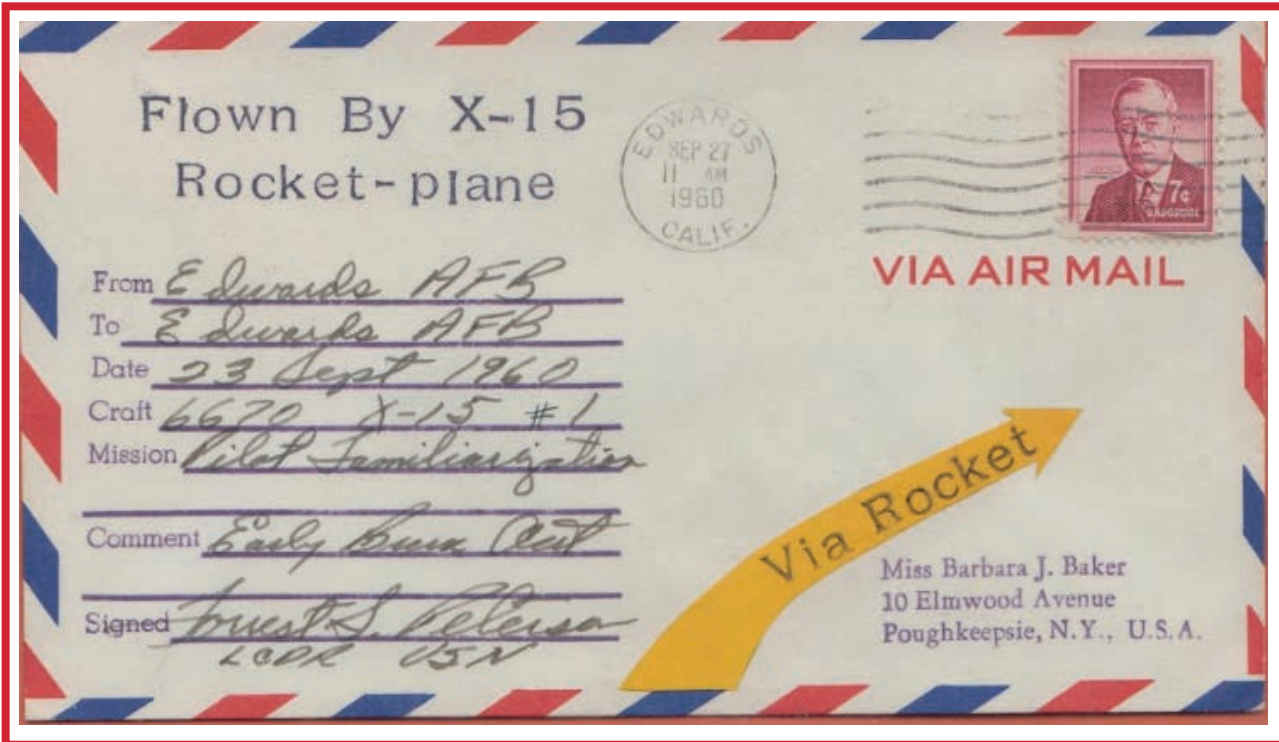 Flown By X-15
Rocket-plane
EDWARDS
SEP 27
11 AM
1960
CALIF.
7¢
U.S. POSTAGE
VIA AIR MAIL
From Edwards AFB
To Edwards AFB
Date 23 Sept 1960
Craft 6670 X-15 #1
Mission Pilot Familiarization
Comment Early Burn Out
Signed Forrest S. Petersen
LCDR USN
Via Rocket
Miss Barbara J. Baker
10 Elmwood Avenue
Poughkeepsie, N.Y., U.S.A.